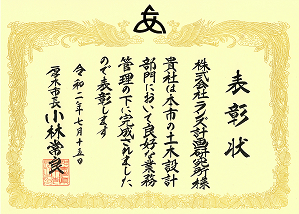 表彰状
株式会社ランズ計画研究所様
貴社は本市の土木設計
部門において良好な業務
管理の下に完成されました
ので表彰します
令和二年七月十五日
厚木市長 小林常良